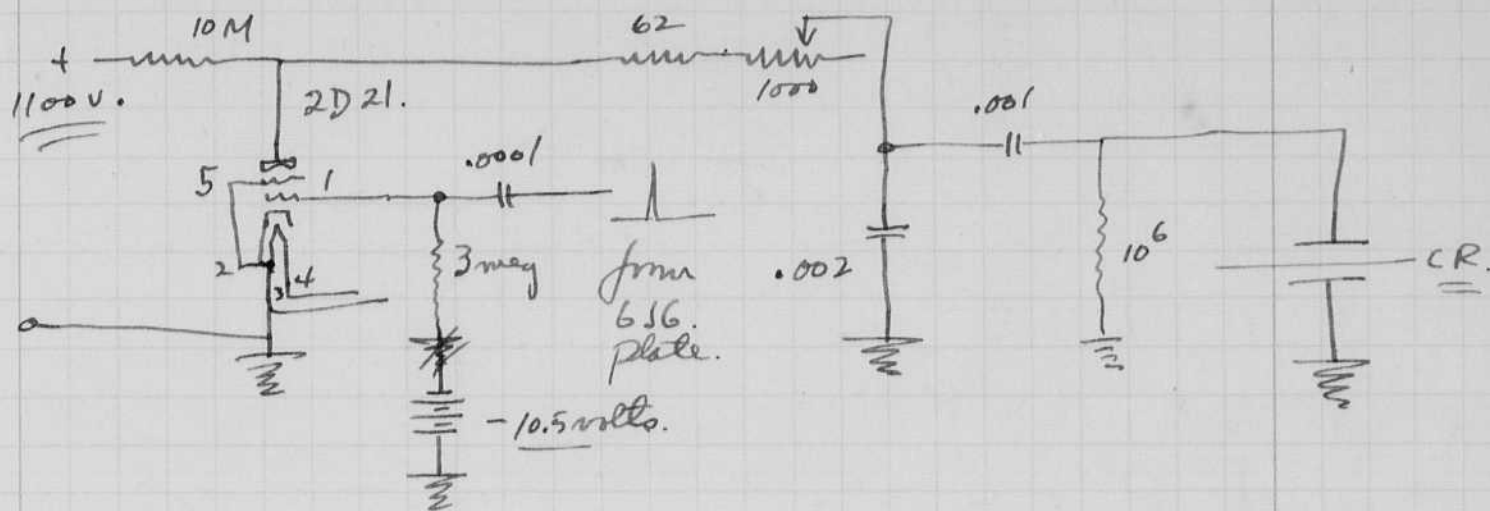 10 M
62
+
1100 V.
2D21.
1000
.001
.0001
5
1
2
3
4
3 meg
from
6J6.
plate.
.002
10⁶
CR.
-10.5 volts.